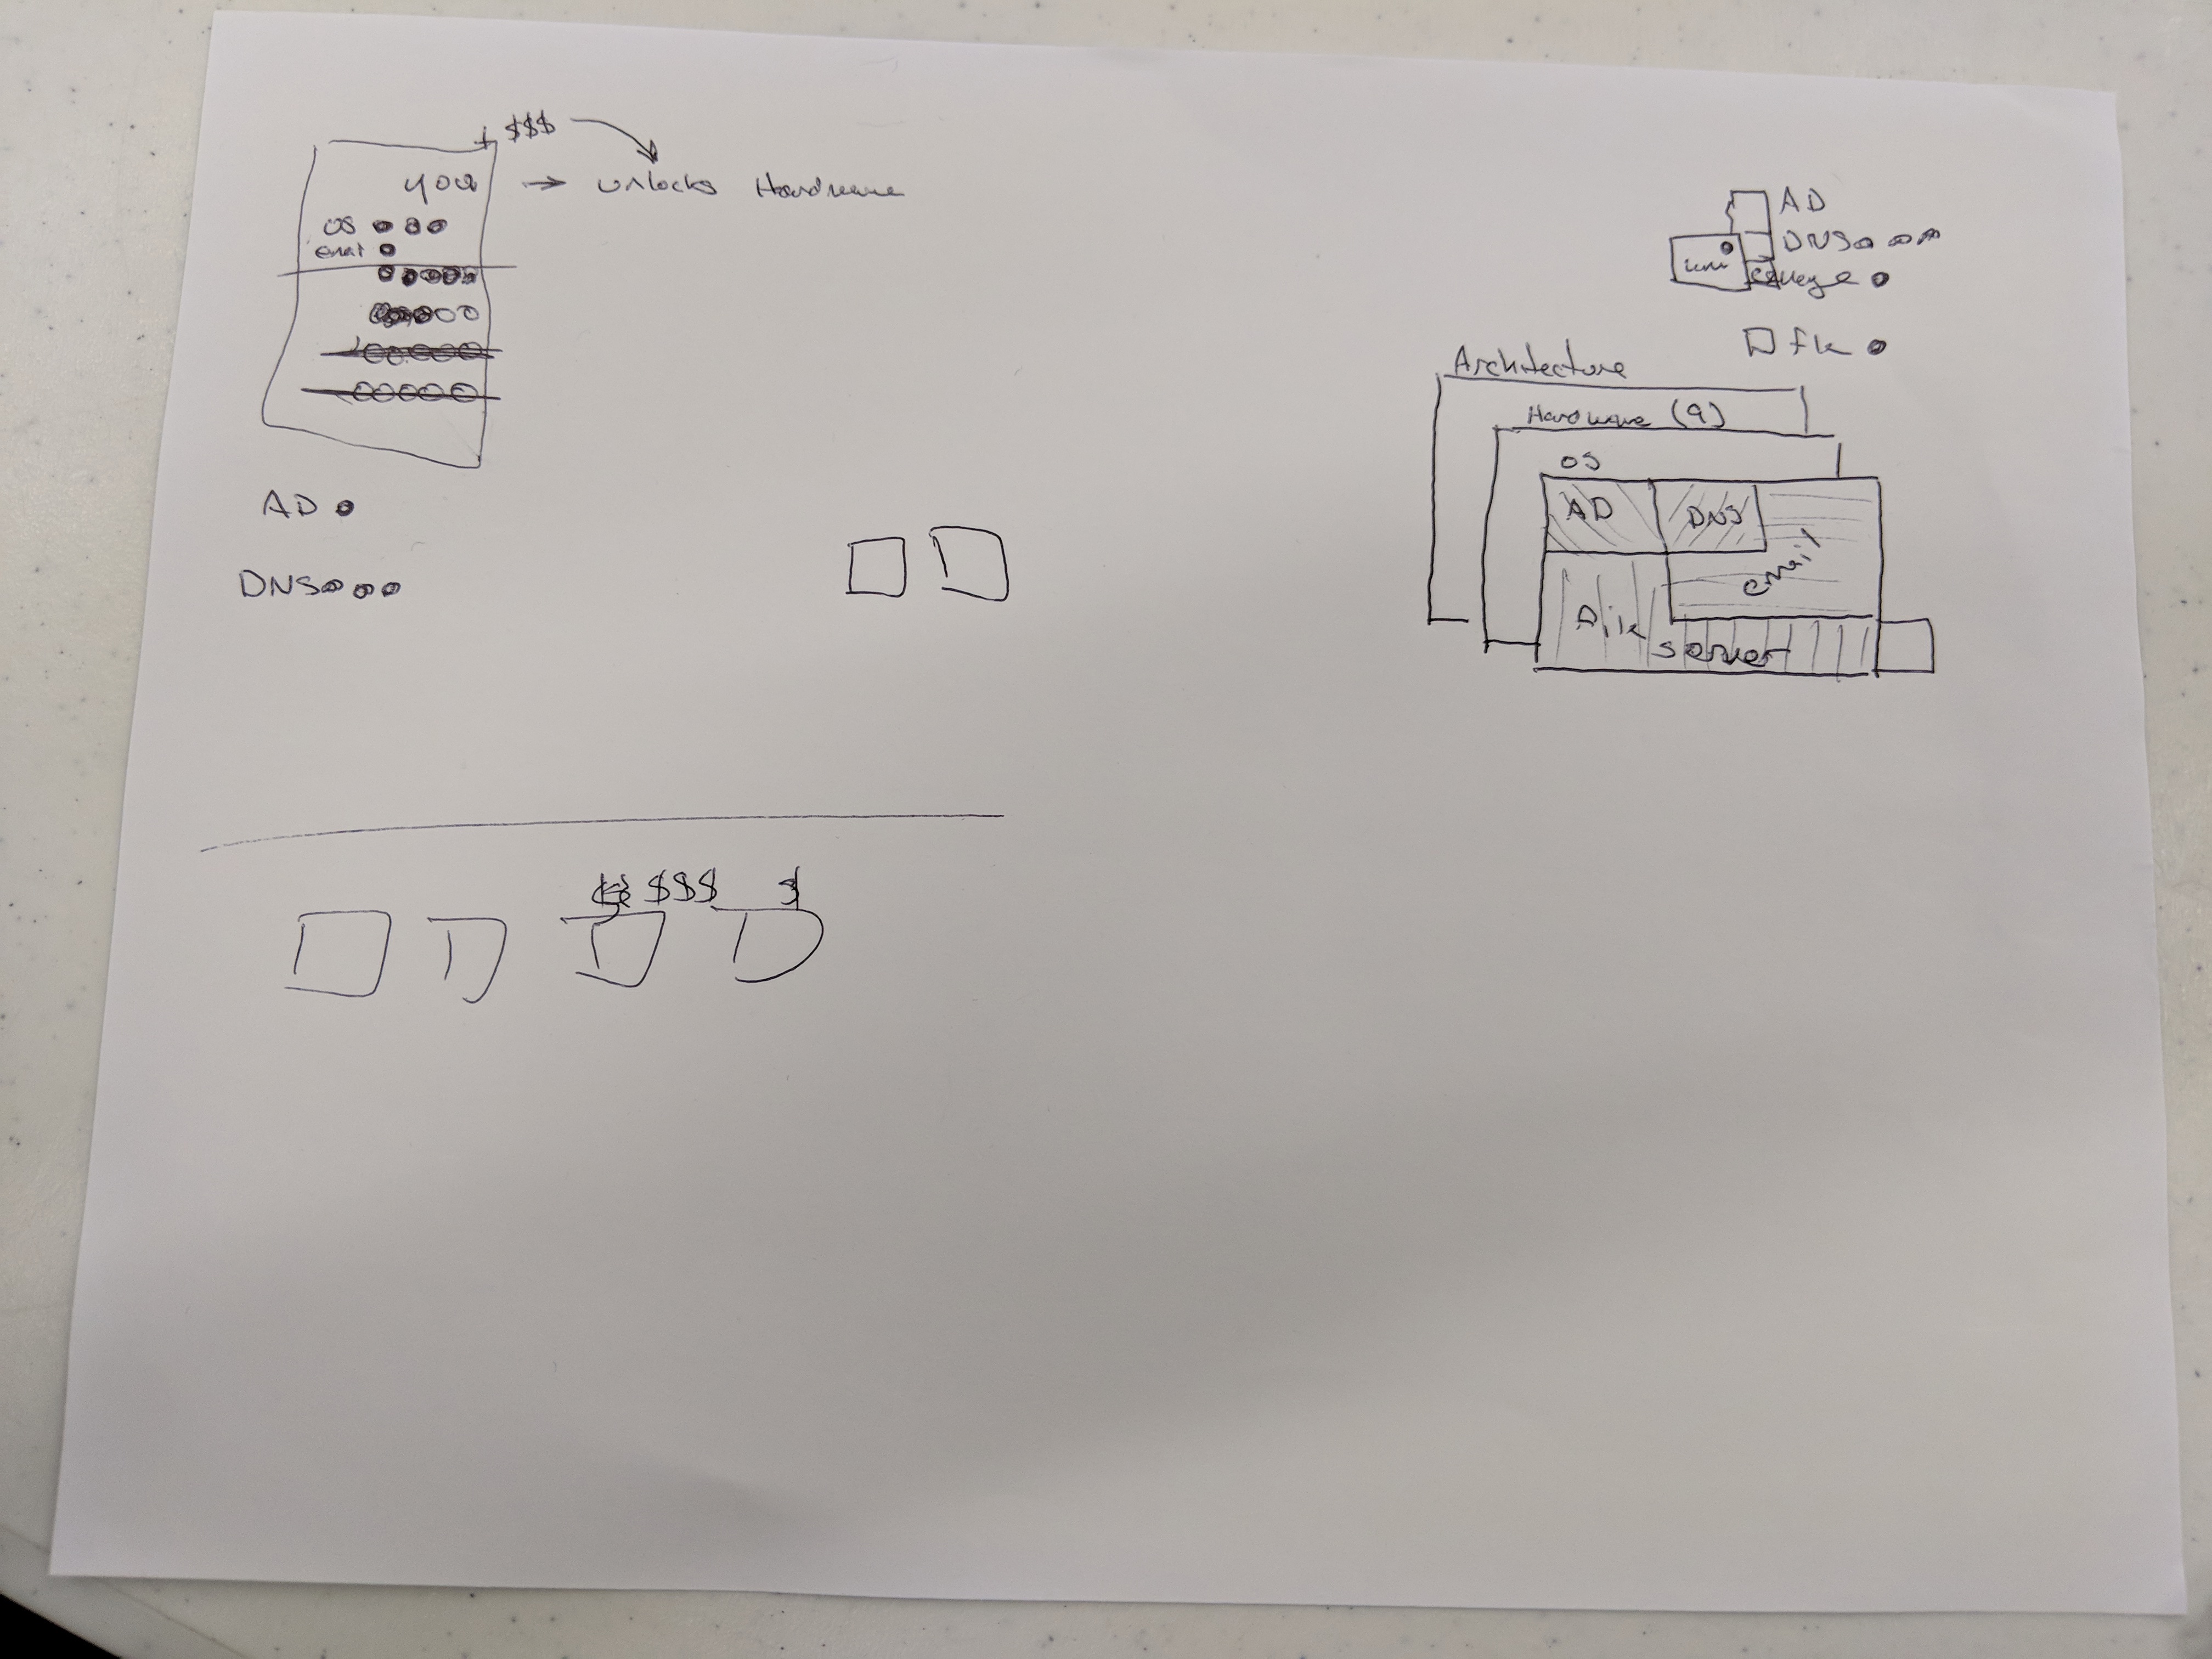 $$$
you → unlocks Hardware
OS
email
AD
DNS
$$$ $
AD
DNS
Architecture
Hardware (9)
OS
AD
DNS
email
server